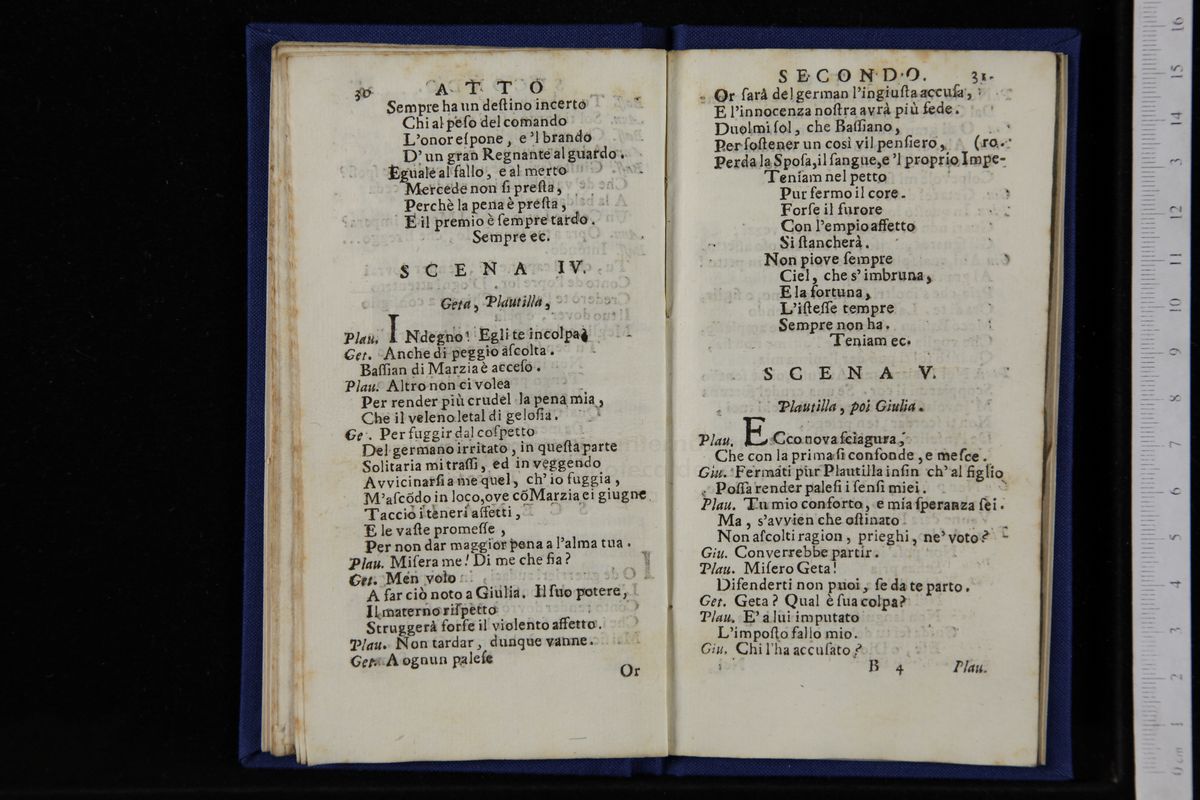 30 ATTO
Sempre ha un deſtino incerto
Chi al peſo del comando
L'onor eſpone, e 'l brando
D' un gran Regnante al guardo.
Eguale al fallo, e al merto
Mercede non ſi preſta,
Perchè la pena è preſta,
E il premio è ſempre tardo.
Sempre ec.
SCENA IV.
Geta, Plautilla,
Plau. INdegno! Egli te incolpa?
Get. Anche di peggio aſcolta.
Baſſian di Marzia è acceſo.
Plau. Altro non ci volea
Per render più crudel la pena mia,
Che il veleno letal di geloſia.
Ge. Per fuggir dal coſpetto
Del germano irritato, in queſta parte
Solitaria mi traſſi, ed in veggendo
Avvicinarſi a me quel, ch' io fuggia,
M'aſcõdo in loco, ove cõ Marzia ei giugne
Taccio i teneri affetti,
E le vaſte promeſſe,
Per non dar maggior pena a l'alma tua.
Plau. Miſera me! Di me che fia?
Get. Men volo
A far ciò noto a Giulia. Il ſuo potere,
Il materno riſpetto
Struggerà forſe il violento affetto.
Plau. Non tardar, dunque vanne.
Get. A ognun paleſe
Or
SECONDO. 31.
Or ſarà del german l'ingiuſta accuſa,
E l'innocenza noſtra avrà più fede.
Duolmi ſol, che Baſſiano,
Per ſoſtener un così vil penſiero, (ro.
Perda la Spoſa, il ſangue, e 'l proprio Impe-
Teniam nel petto
Pur fermo il core.
Forſe il furore
Con l'empio affetto
Si ſtancherà.
Non piove ſempre
Ciel, che s' imbruna,
E la fortuna,
L'iſteſſe tempre
Sempre non ha.
Teniam ec.
SCENA V.
Plautilla, poi Giulia.
Plau. ECco nova ſciagura,
Che con la prima ſi confonde, e meſce.
Giu. Fermati pur Plautilla inſin ch' al figlio
Poſſa render paleſi i ſenſi miei.
Plau. Tu mio conforto, e mia ſperanza ſei.
Ma, s'avvien che oſtinato
Non aſcolti ragion, prieghi, ne' voto?
Giu. Converrebbe partir.
Plau. Miſero Geta!
Difenderti non puoi, ſe da te parto.
Get. Geta? Qual è ſua colpa?
Plau. E' a lui imputato
L'impoſto fallo mio.
Giu. Chi l'ha accuſato?
B 4 Plau.